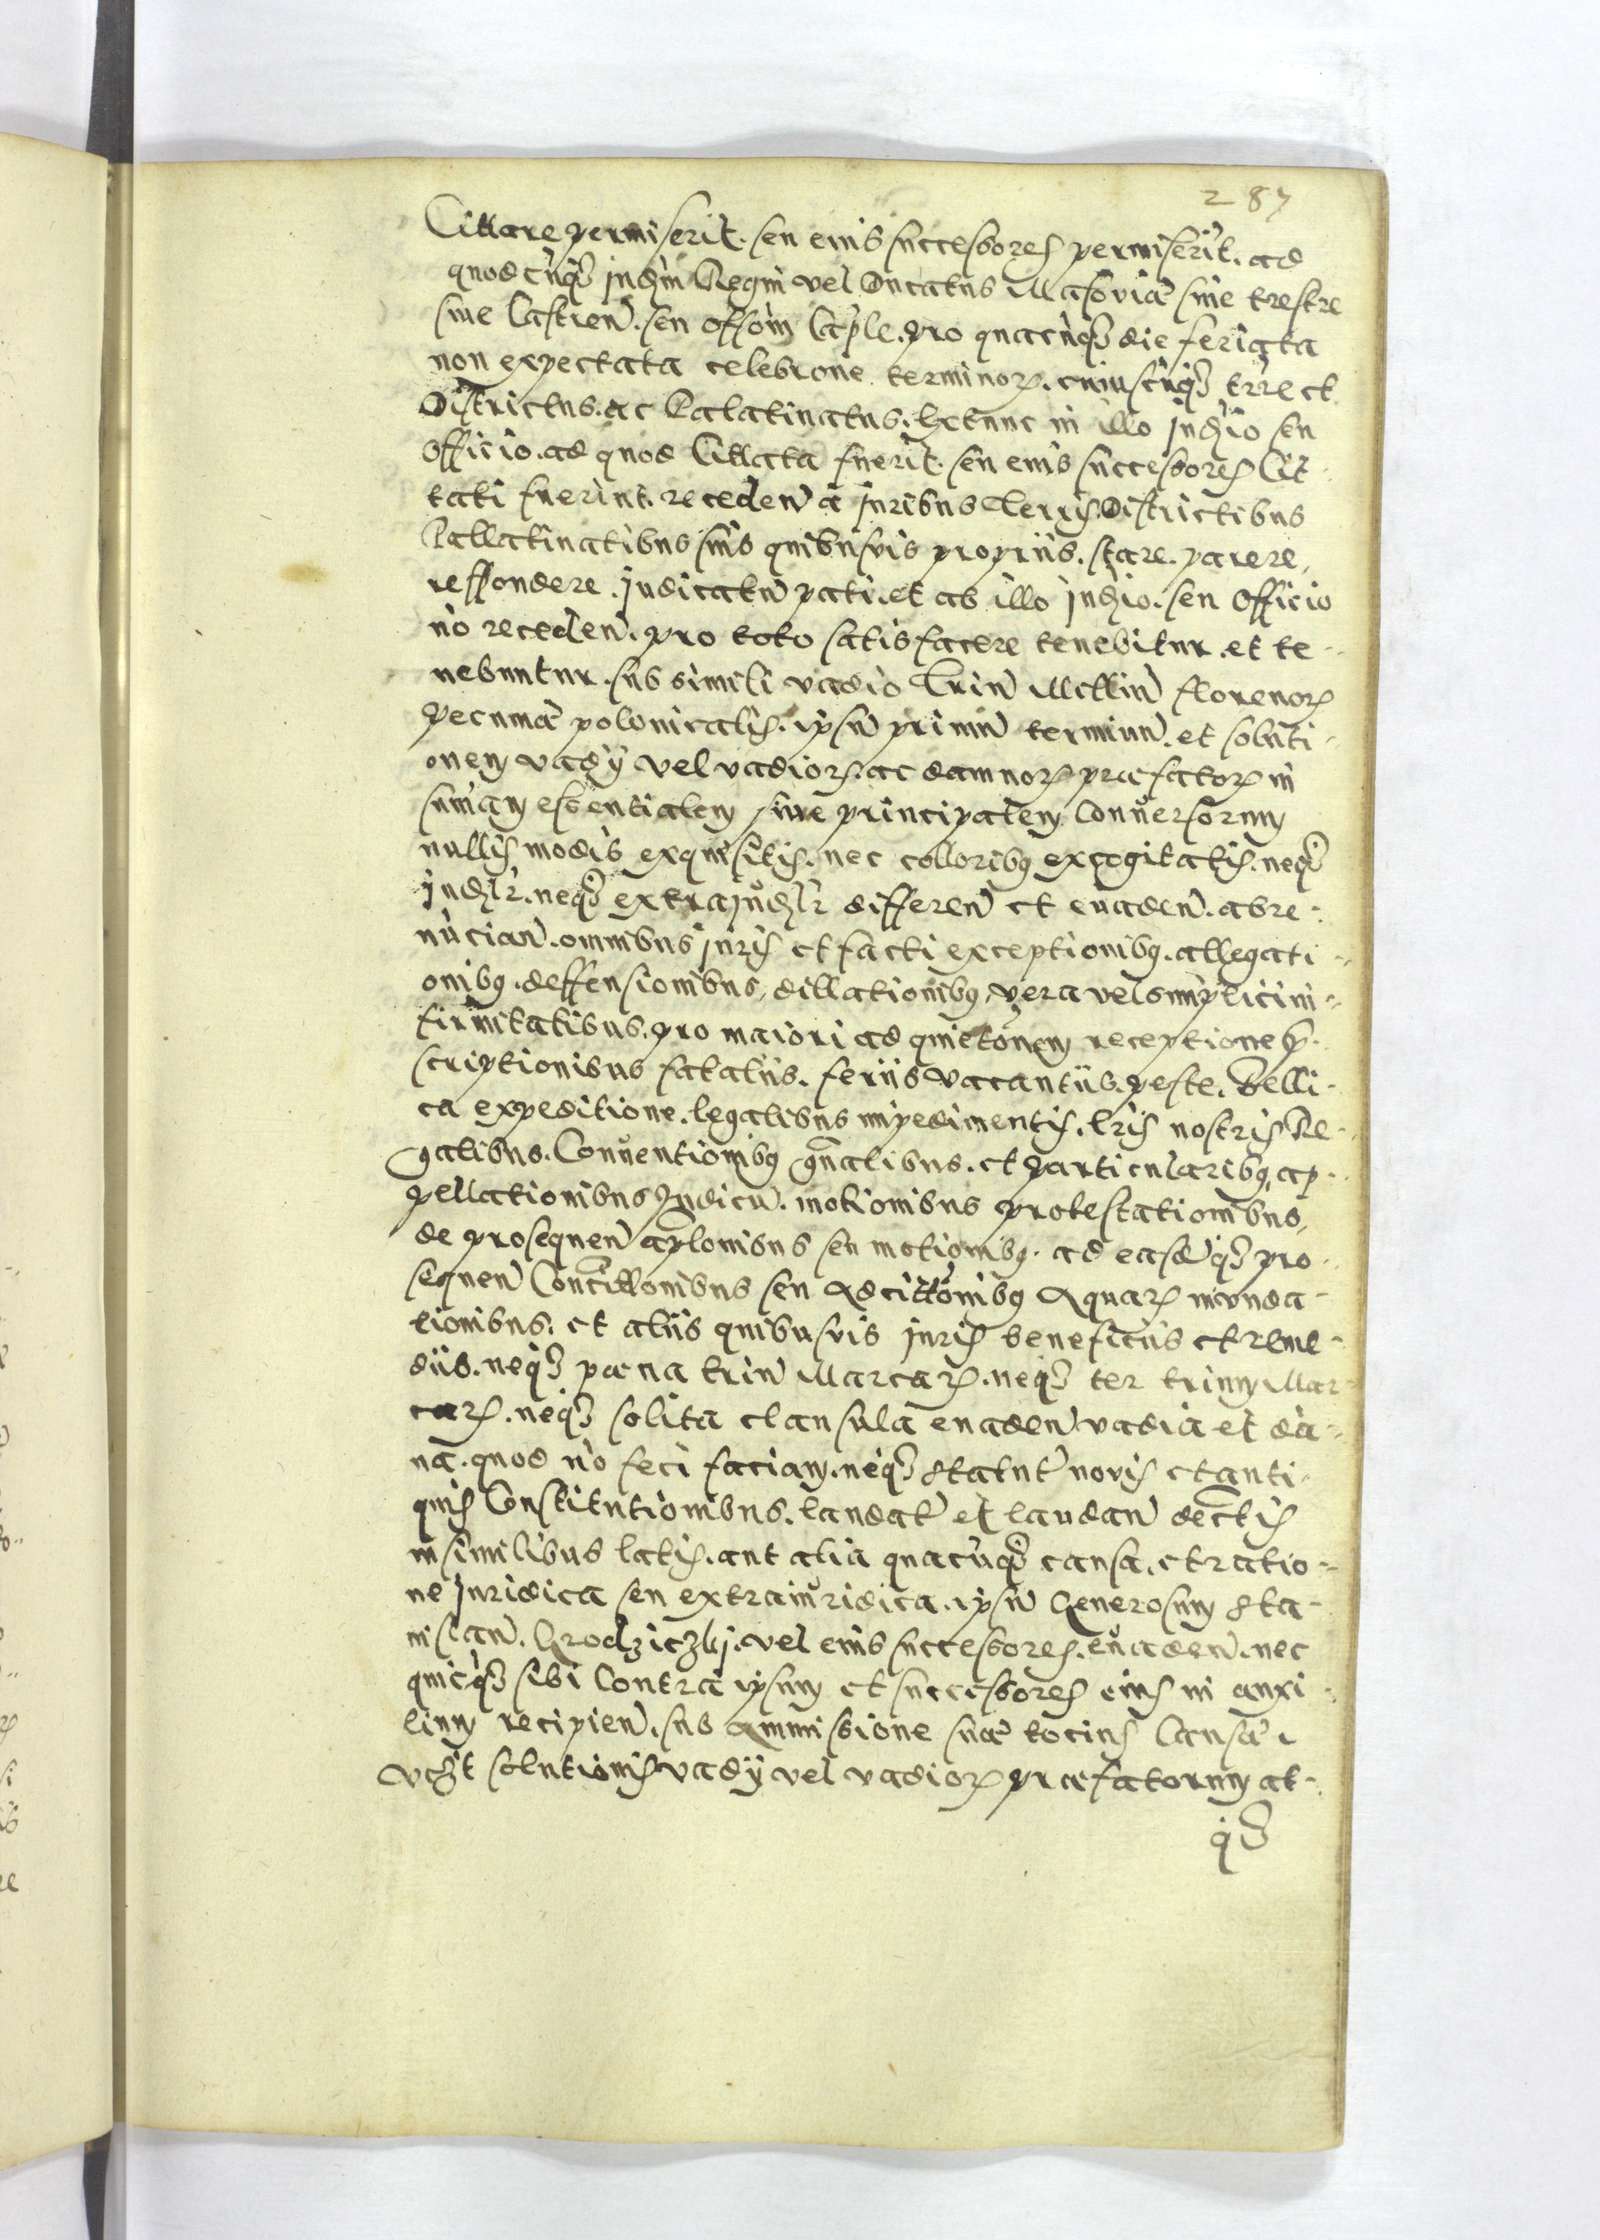 287
Cittare permiserit. seu eius successores permiserit. ad
quodcunqȝ judm Regni vel Ducatus Masoviae sive trestre
sive Castren. seu officm Caple. pro quacunqȝ die feriata
non expectata celebrone terminor. cuiuscunqȝ terre et
Districtus. ac Palatinatus. Extunc in illo Judio seu
Officio. ad quod Cittata fuerit. seu eius successores Cit-
tati fuerint. receden a juribus Terris Districtibus
Pallatinatibus suis quibusvis propriis. stare. parere,
respondere. judicatu pati. et ab illo judio. seu Officio
no receden. pro toto satisfacere tenebitur. et te-
nebuntur. sub simili vadio Trin Millin florenor
Pecuniae polonicalis. ipsu primu terminu. et soluti-
onem vadÿ vel vadior. ac damnor praefator in
sumam essentialem sive principalem Conversorum
nullis modis exquisitis. nec colloribȝ excogitatis. neqȝ
judlr. neqȝ extrajudlr differen et evaden. abre-
nucian. omnibus juris et facti exceptionibȝ. allegati-
onibȝ. deffensionibus, dillationibȝ, vera vel simplici in-
firmitatibus. pro maiori ad quietonem receptione
scriptionibus fataliis. feriis vacantiis. peste. Belli-
ca expeditione. legalibus impedimentis. lris nostris Re-
galibus. Conventionibȝ gnalibus. et particularibȝ, ap-
pellationibus Judicu. motionibus protestationibus,
de prosequen aplonibus seu motionibȝ. ad easdeqȝ pro-
sequen Concittonibus seu Adcittonibȝ Aquar inunda-
tionibus. et aliis quibusvis juris beneficiis et reme-
diis. neqȝ paena trin Marcar. neqȝ ter trium Mar-
car. neqȝ solita clausula evaden vadia et da-
na. quod no feci faciam. neqȝ statut novis et anti-
quis Constitutionibus. laudat et laudan dectis
in similibus latis. aut alia quacunqȝ causa. et ratio-
ne juridica seu extrajuridica. ipsu Generosum Sta-
nislau. Grodziczki. vel eius successores. evaden. nec
quicqȝ sibi Contra ipsum et successores eius in auxi-
lium recipien. sub Ammissione suae tocius Causae
solutionis vadÿ vel vadior praefatorum at-
qȝ